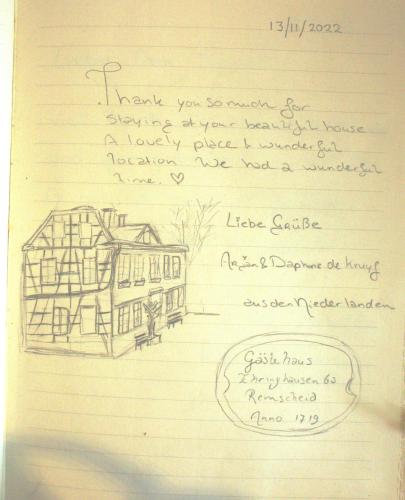 13/11/2022
Thank you so much for
staying at your beautiful house
A lovely place & wunderful
location We had a wunderful
time. ♡
Liebe Grüße
Arjan & Daphne de Kruyf
aus den Niederlanden
Gästehaus
Ehringhausen 62
Remscheid
Anno 1719